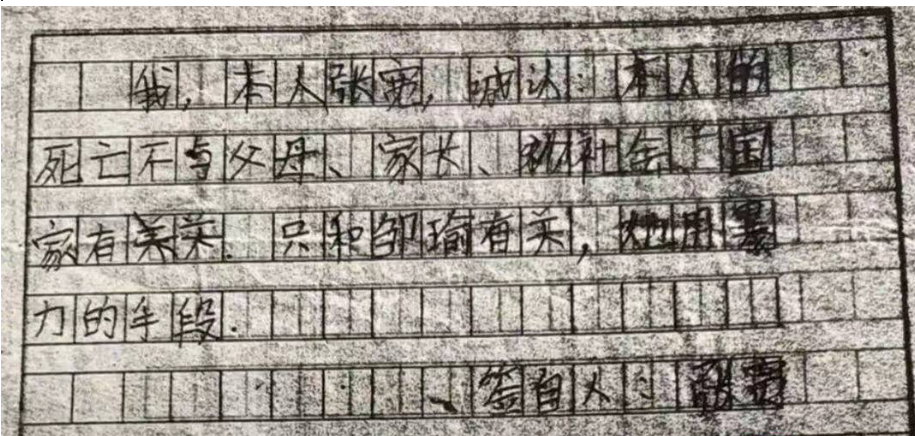 我，本人张宽，诚认：本人的
死亡不与父母、家长、社会、国
家有关. 只和邹瑜有关，她用暴
力的手段.
签自人：张宽